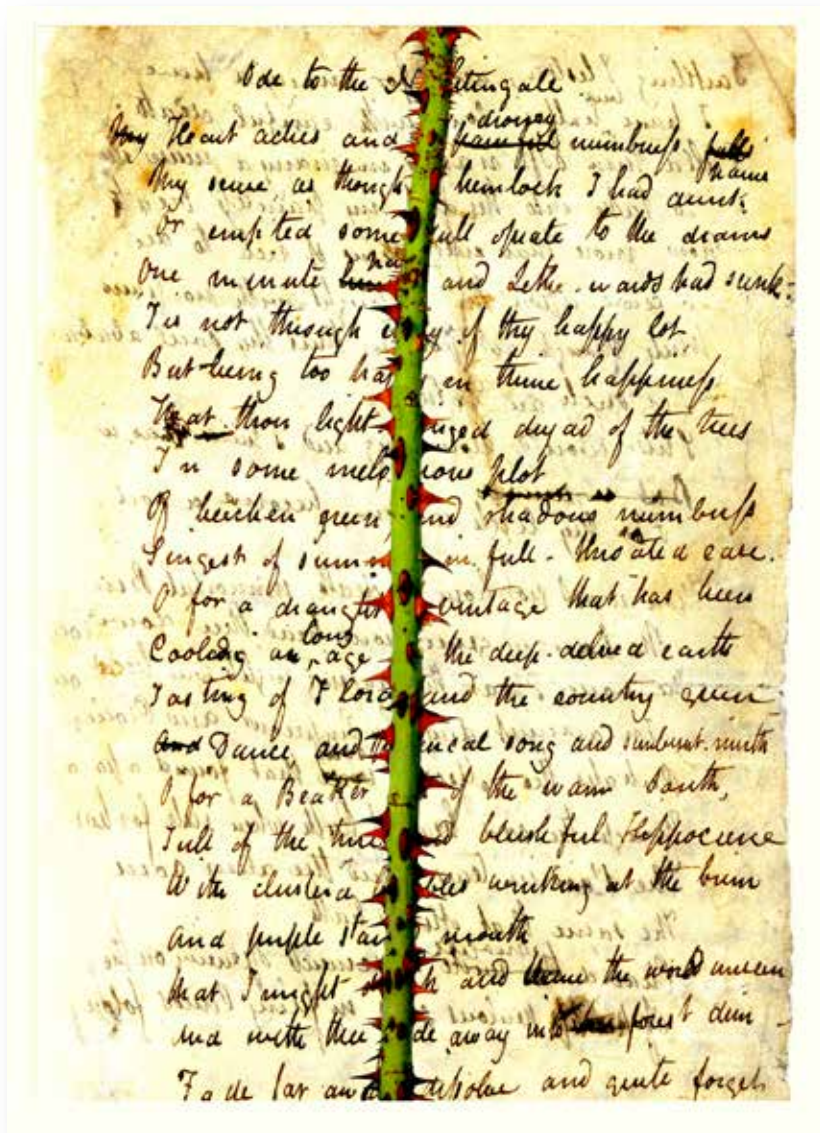 Ode to the Nightingale
drowsy
My Heart aches and painful numbness falls
pains
My sense as though hemlock I had drunk
Or emptied some dull opiate to the drains
One minute and Lethe-wards had sunk.
Tis not through envy of thy happy lot
But being too happy in thine happiness
That thou light-winged dryad of the trees
In some melodious plot
Of beechen green and shadows numberless
Singest of summer in full-throated ease.
O for a draught vintage that has been
long
Cooling an age the deep-delved earth
Tasting of Flora and the country green
And Dance and song and sunburnt mirth
O for a Beaker of the warm South,
Full of the true and blushful Hippocrene
With cluster'd bubbles winking at the brim
And purple stained mouth
That I might drink and leave the world unseen
And with thee fade away into forest dim
Fade far away dissolve and quite forget